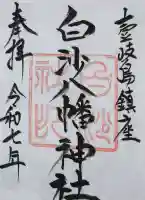 壱岐島鎮座
白沙八幡神社
奉拝
令和七年